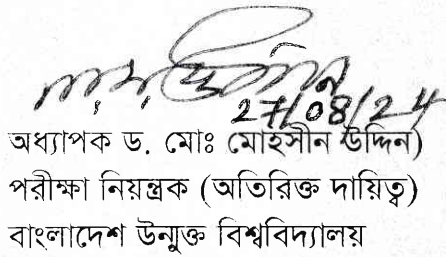 27/08/24
অধ্যাপক ড. মোঃ মোহসীন উদ্দিন)
পরীক্ষা নিয়ন্ত্রক (অতিরিক্ত দায়িত্ব)
বাংলাদেশ উন্মুক্ত বিশ্ববিদ্যালয়